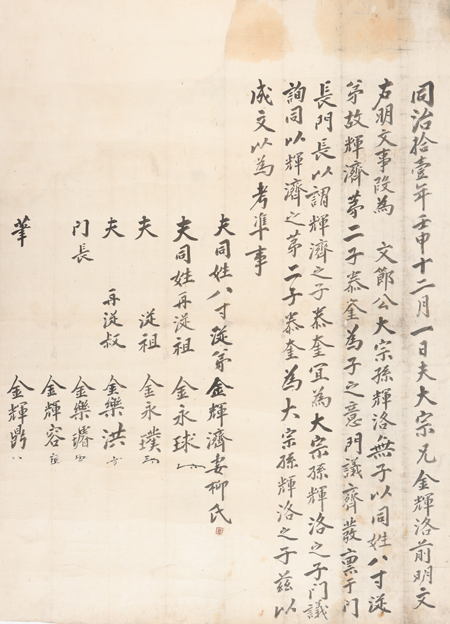 同治拾壹年壬申十二月一日夫大宗兄金輝洛前明文
右明文事段為 文節公大宗孫輝洛無子以同姓八寸從
弟故輝濟第二子恭奎為子之意門議齊發稟于門
長門長以謂輝濟之子恭奎宜為大宗孫輝洛之子門議
詢同以輝濟之第二子恭奎為大宗孫輝洛之子茲以
成文以為考準事
夫同姓八寸從弟金輝濟妻柳氏
夫同姓再從祖 金永球
夫 從祖 金永璞
夫 再從叔 金樂洪
門長 金樂璿
金輝容
筆 金輝鼎